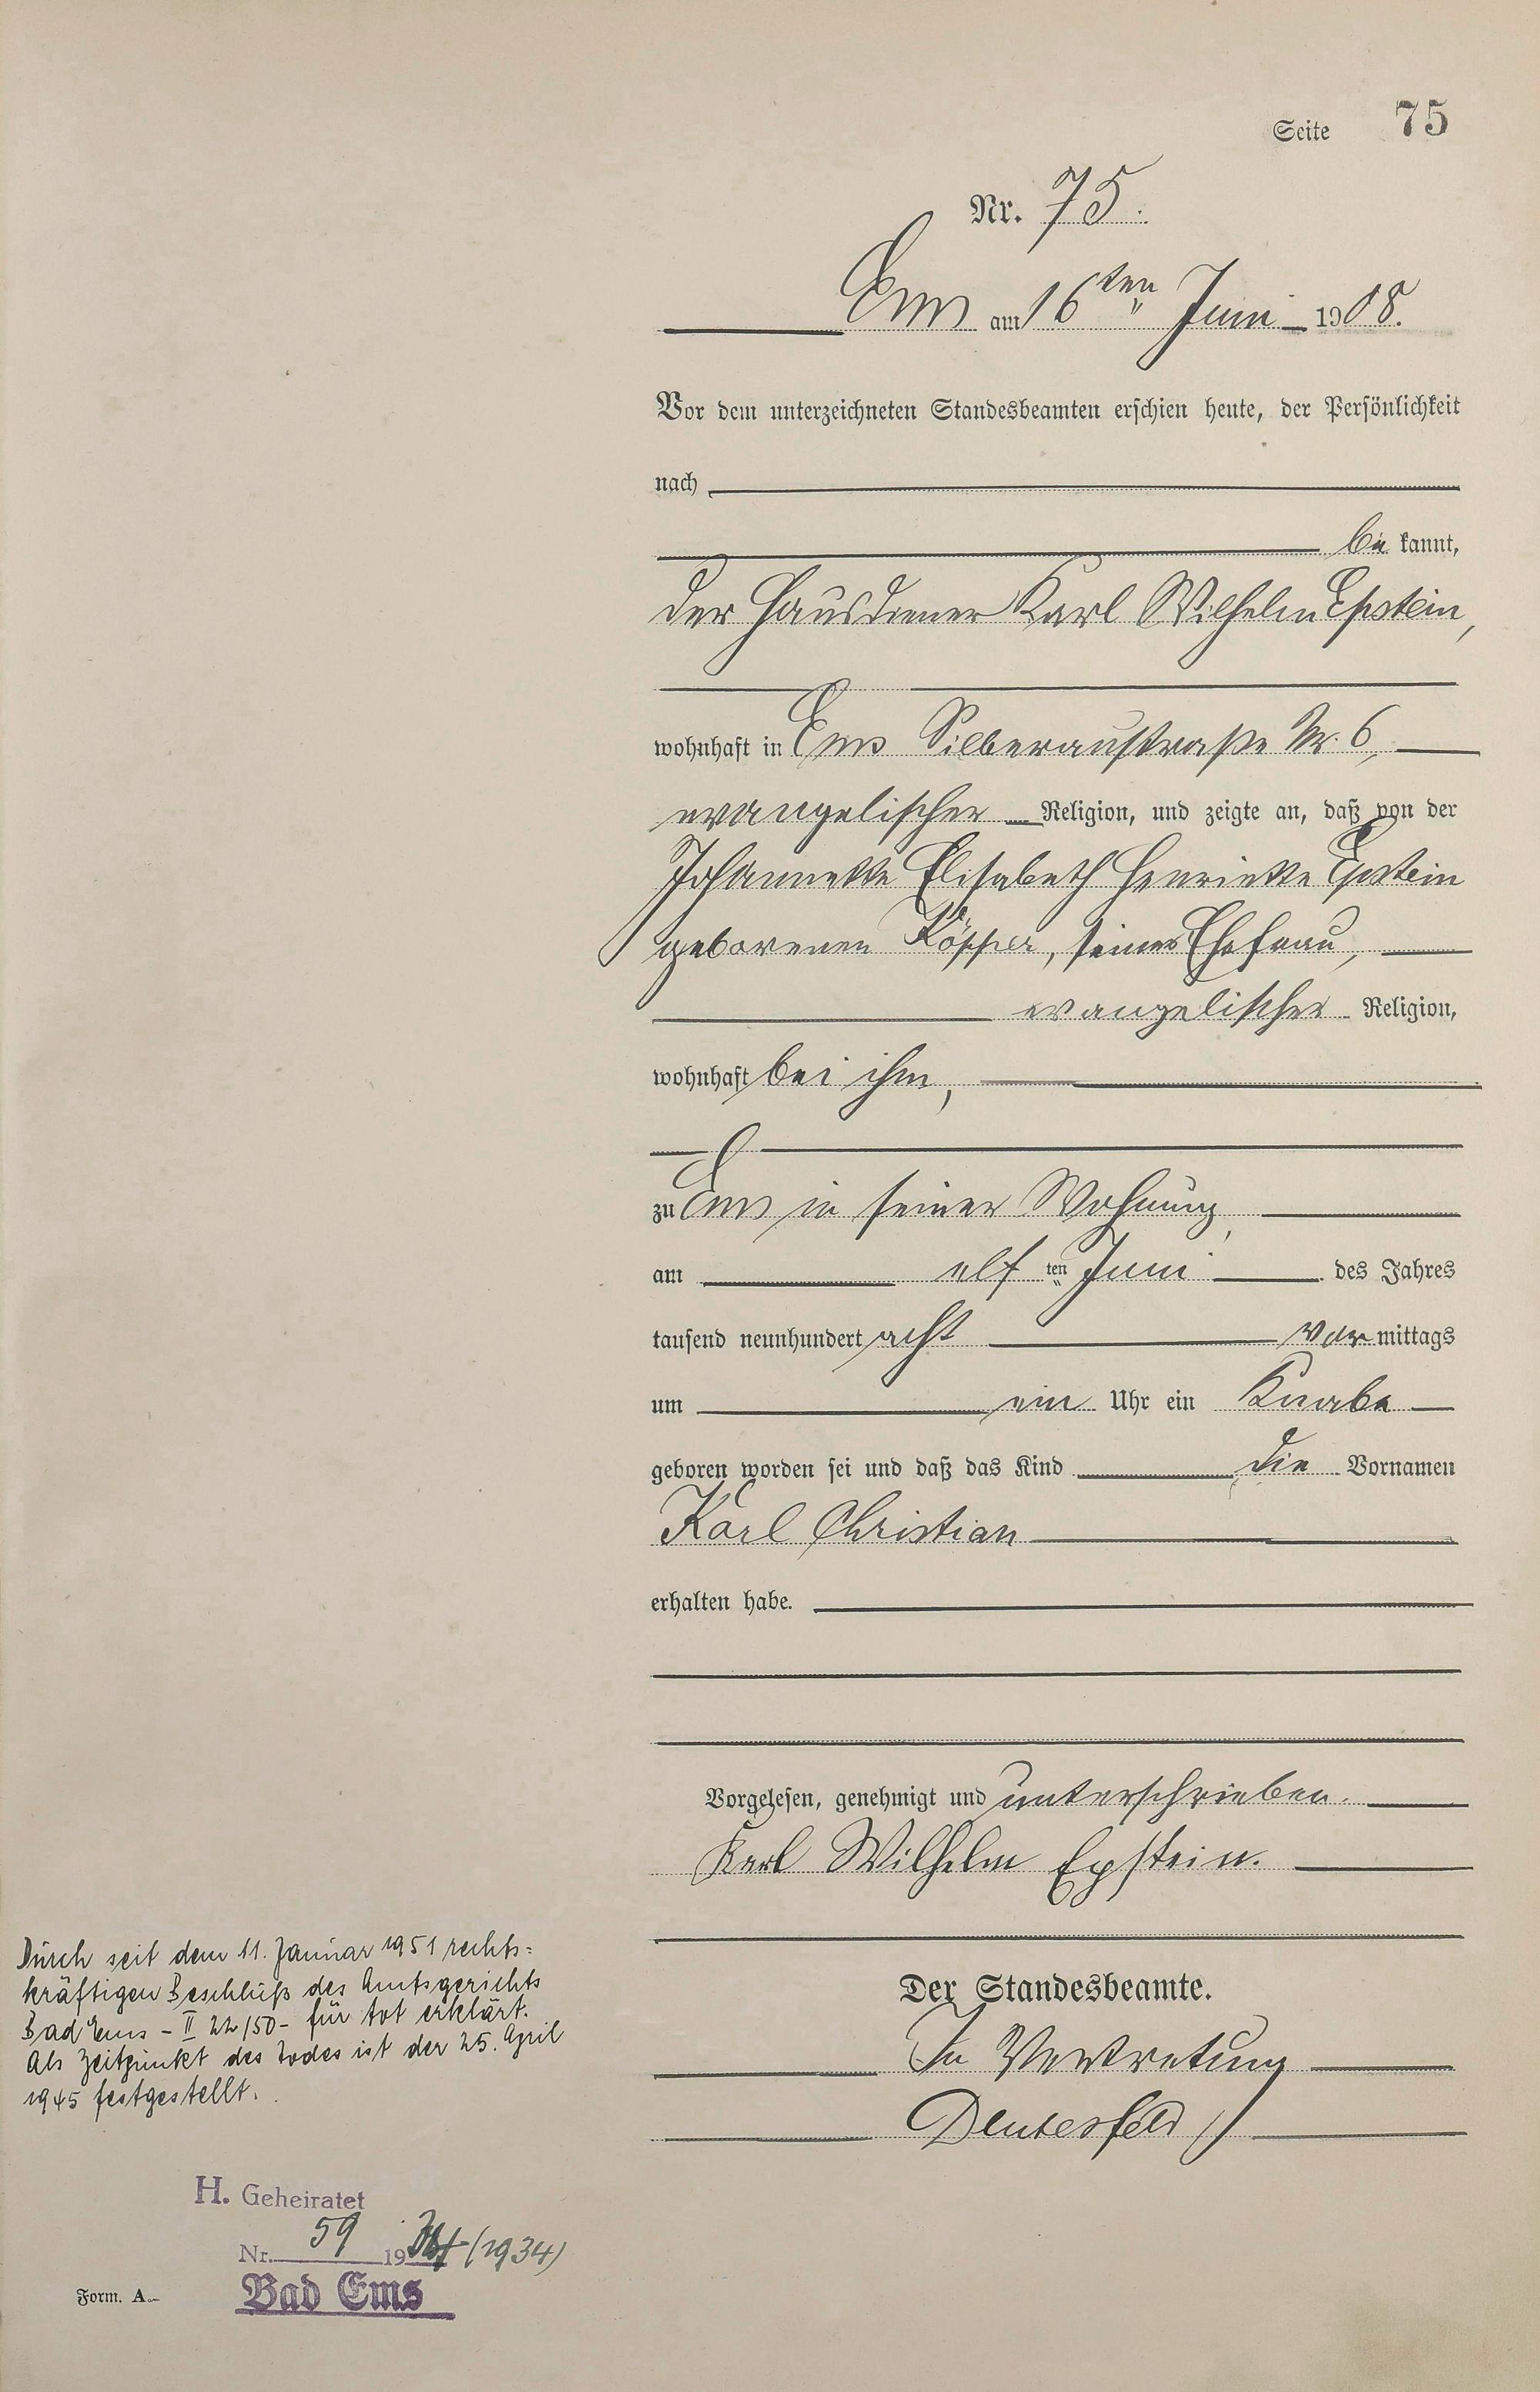 Seite 75
Nr. 75.
Ems am 16ten Juni 1908.
Vor dem unterzeichneten Standesbeamten erschien heute, der Persönlichkeit
nach
be kannt,
der Hausdiener Karl Wilhelm Epstein,
wohnhaft in Ems Silberaustraße Nr. 6,
evangelischer Religion, und zeigte an, daß von der
Johannette Elisabeth Henriette Epstein
geborenen Köpper, seiner Ehefrau,
evangelischer Religion,
wohnhaft bei ihm,
zu Ems in seiner Wohnung,
am elf ten Juni des Jahres
tausend neunhundert acht vor mittags
um ein Uhr ein Knabe
geboren worden sei und daß das Kind die Vornamen
Karl Christian
erhalten habe.
Vorgelesen, genehmigt und unterschrieben.
Karl Wilhelm Epstein.
Der Standesbeamte.
In Vertretung
Deutesfeld
Durch seit dem 11. Januar 1951 rechts=
kräftigen Beschluß des Amtsgerichts
Bad Ems – II 22/50 – für tot erklärt.
Als Zeitpunkt des Todes ist der 25. April
1945 festgestellt.
H. Geheiratet
Nr. 59 19 (1934)
Bad Ems
Form. A.